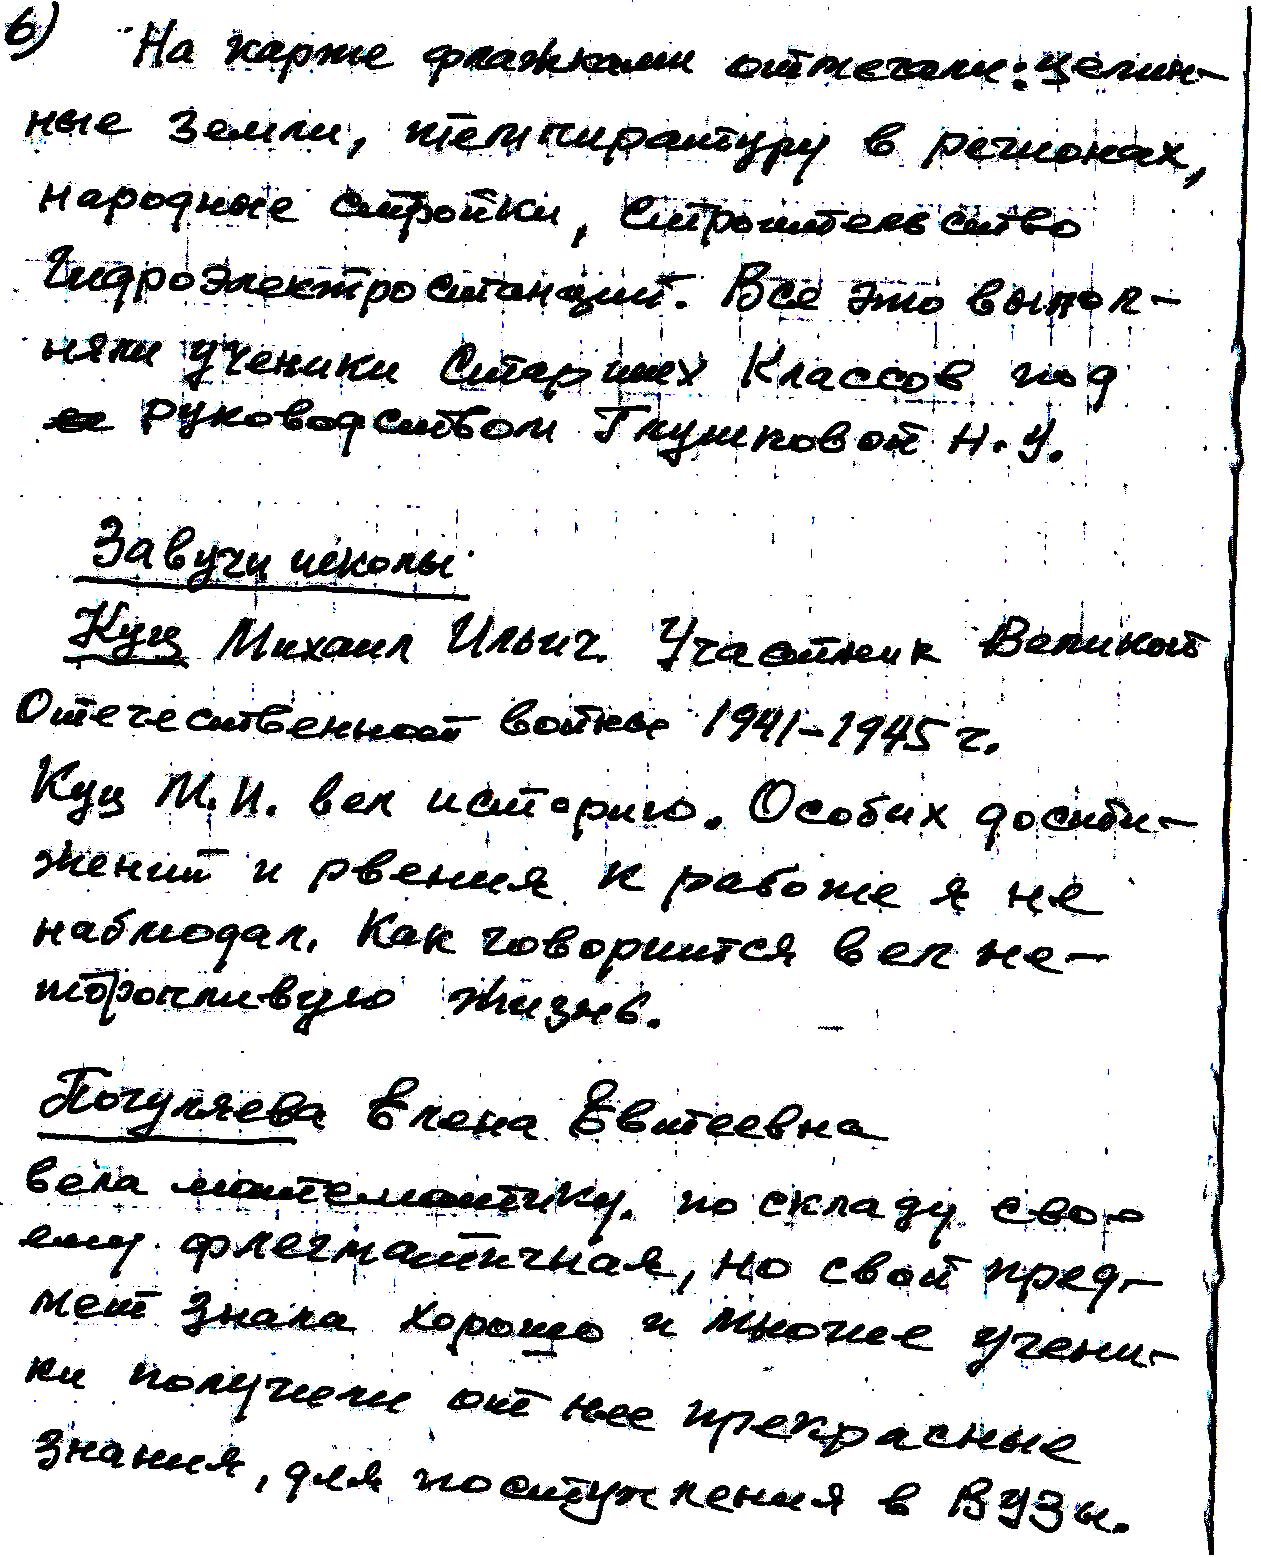 6) На карте флажками отмечали: целин-
ные земли, темпирартуру в регионах,
народные стройки, строительство
Гидроэлектростанций. Все это выпол-
няли ученики старших классов под
руководством Глушковой Н. У.
Завучи школы
Куц Михаил Ильич. Участник Великой
Отечественной войны 1941-1945 г.
Куц М. И. вел историю. Особих дости-
жений и рвения к работе я не
наблюдал. Как говорится вел не-
торопливую жизнь.
Погуляева Елена Евтеевна
вела математику. по складу сво-
ему флегматичная, но свой пред-
мет знала хорошо и многие учени-
ки получили от нее прекрасные
знания, для поступления в ВУЗы.